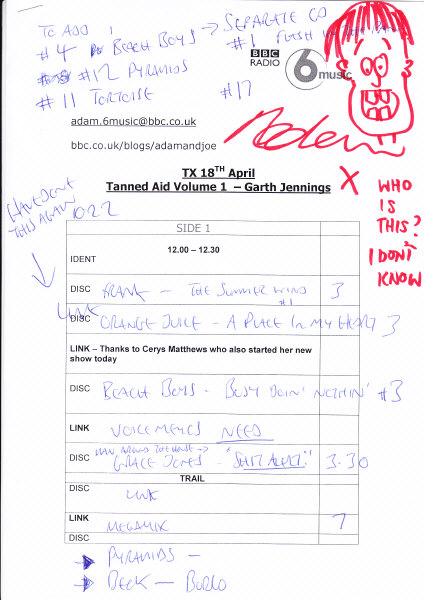 TO ADD :
#4 BEACH BOYS → SEPARATE CD
#1 FLUSH IN THE
#12 PYRAMIDS
#11 TORTOISE
#17
BBC
RADIO
6music
adam.6music@bbc.co.uk
bbc.co.uk/blogs/adamandjoe
Adam
X
TX 18TH April
Tanned Aid Volume 1 – Garth Jennings
WHO
IS
THIS?
I DON'T
KNOW
HAVE DONE
THIS AGAIN
1022
SIDE 1
IDENT 12.00 – 12.30
DISC FRANK — THE SUMMER WIND 3
#1
LINK
DISC ORANGE JUICE - A PLACE IN MY HEART 3
LINK – Thanks to Cerys Matthews who also started her new
show today
DISC BEACH BOYS - BUSY DOIN' NOTHIN' #3
LINK VOICEMEMOS NEED
MAN AROUND THE HOUSE →
DISC GRACE JONES - "SHIT ALERT!" 3.30
TRAIL
DISC
LINK
LINK MEGAMIX 7
DISC
→ PYRAMIDS –
→ BECK — BORLO